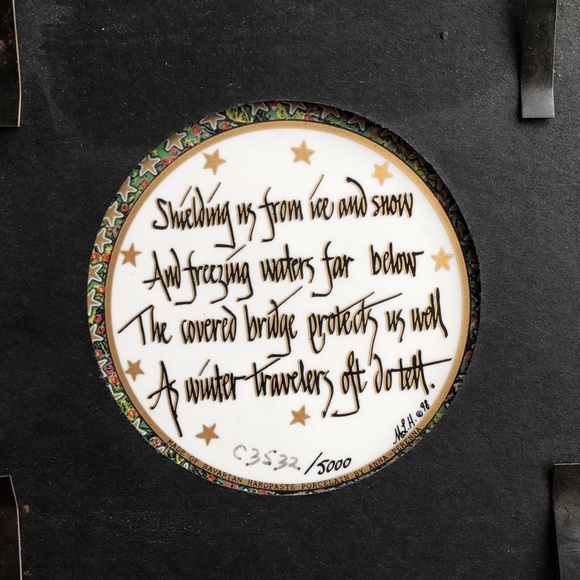 Shielding us from ice and snow
And freezing waters far below
The covered bridge protects us well
As winter travelers oft do tell.
M.L.H. © 98
C3532/5000
MADE OF BAVARIAN HARDPASTE PORCELAIN BY ANNA-PERENNA